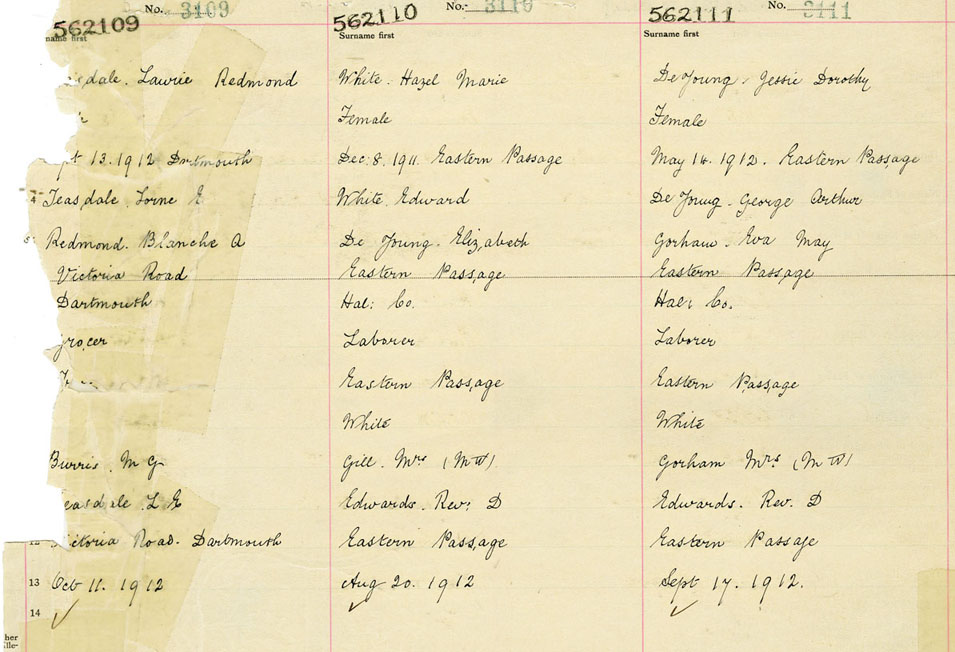 No. 3109
562109
name first
dale. Laurie Redmond
13. 1912 Dartmouth
4 Teasdale. Lorne E
5 Redmond. Blanche A
Victoria Road
Dartmouth
Grocer
Burris. M G
easdale. L E
12 Victoria Road. Dartmouth
13 Oct 11. 1912
14 ✓
her
lle-
No. 3110
562110
Surname first
White. Hazel Marie
Female
Dec. 8. 1911. Eastern Passage
White. Edward
De Young. Elizabeth
Eastern Passage
Hal: Co.
Laborer
Eastern Passage
White
Gill. Mrs (M W)
Edwards. Rev: D
Eastern Passage
Aug 20. 1912
✓
No. 3111
562111
Surname first
De Young. Jessie Dorothy
Female
May 14. 1912. Eastern Passage
De Young. George Arthur
Gorham. Eva May
Eastern Passage
Hal: Co.
Laborer
Eastern Passage
White
Gorham Mrs (M W)
Edwards. Rev. D
Eastern Passage
Sept 17. 1912.
✓